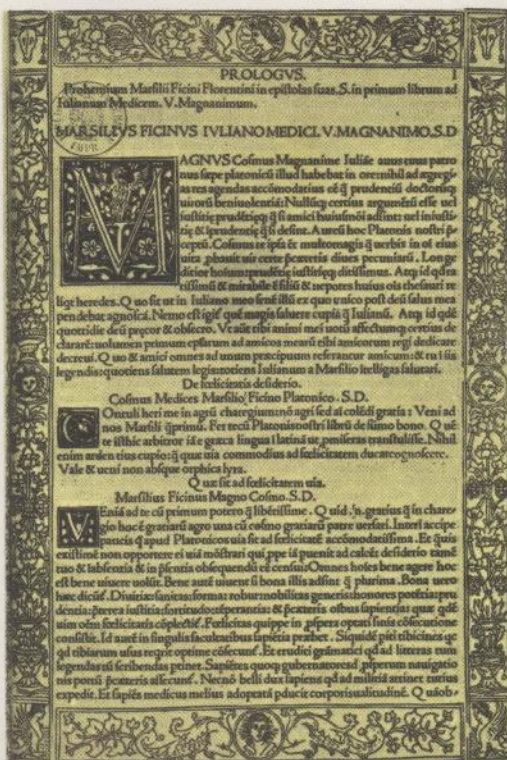 PROLOGVS. I
Prohemium Marsilii Ficini Florentini in epistolas suas. S. in primum librum ad
Iulianum Medicem. V. Magnanimum.
MARSILIVS FICINVS IVLIANO MEDICI. V. MAGNANIMO. S.D
MAGNVS Cosmus Magnanime Iuliane auus tuus patro
nus sæpe platonicū illud habebat in ore: nihil ad egregi
as res agendas accōmodatius eē q̄ prudentiū doctorūq;
uirorū beniuolentiā: Nullūq; certius argumētū esse uel
iustitię prudētięq; q̄ si amici huiusmōi adsint: uel iniusti
tię & īprudentię q̄ si desint. Aureū hoc Platonis nostri p̄
ceptū. Cosmus
uita
ditior hoīum: prudētię iustitięq; ditissimus. Atq; id qd̄ ra
rissimū & mirabile ē filiū & nepotes huius ois thesauri re
liqt heredes. Q uo fit ut in Iuliano meo
pendebat agnoscā. Nemo est igit̄ quē magis saluere cupiā q̄ Iulianū. Atq; id qd̄
quotidie deū pręcor & obsecro. Vt aūt tibi animi mei uotū affectumq; certius de
clararē: uolumen primum epl̄arum ad amicos mearū tibi amicorum regi dedicare
decreui. Q uo & amici omnes ad unum præcipuum referantur amicum: & tu
legendis: quotiens salutem legis: totiens Iulianum a Marsilio ītelligas salutari.
De fœlicitatis desiderio.
Cosmus Medices Marsilio Ficino Platonico. S.D.
COntuli heri me in agrū charegium: nō agri sed aī colēdi gratia: Veni ad
nos Marsili q̄primū. Fer tecū Platonis nostri librū de sūmo bono. Q uē
te isthic arbitror iā e græca lingua ī latinā ut
enim ardentius cupio: q̄ quæ uia commodius ad fœlicitatem ducat cognoscere.
Vale & ueni non absque orphica lyra.
Q uæ sit ad fœlicitatem uia.
Marsilius Ficinus Magno Cosmo. S.D.
VEniā ad te cū primum potero q̄ libētissime. Q uid .n. gratius q̄ in chare
gio hoc ē gratiarū agro una cū cosmo gratiarū patre uersari. Interī accipe
paucis q̄ apud Platonicos uia sit ad fœlicitatē accōmodatissima. Et q̄uis
existimē non opportere ei uiā mōstrari qui
tuo & absentia & in
est bene uiuere uolūt. Bene autē uiuent si bona illis adsint q̄ plurima. Bona uero
hæc dicūt̄. Diuitiæ: sanitas: forma: robur: nobilitas generis: honores: potētia: pru
dentia: præterea iustitia: fortitudo: tēperantia: &
uim oēm fœlicitatis cōplectit̄. Fœlicitas quippe in
consistit. Id autē in singulis facultatibus sapiētia præbet. Siquidē
qd̄ tibiarum usus reqrit optime cōsecunt̄. Et eruditi grāmatici qd̄ ad litteras tum
legendas tū scribendas ptinet. Sapiētes quoq; gubernatores
nis portū p̄ cæteris assecunt̄. Necnō belli dux sapiens qd̄ ad militiā attinet tutius
expedit. Et sapiēs medicus melius